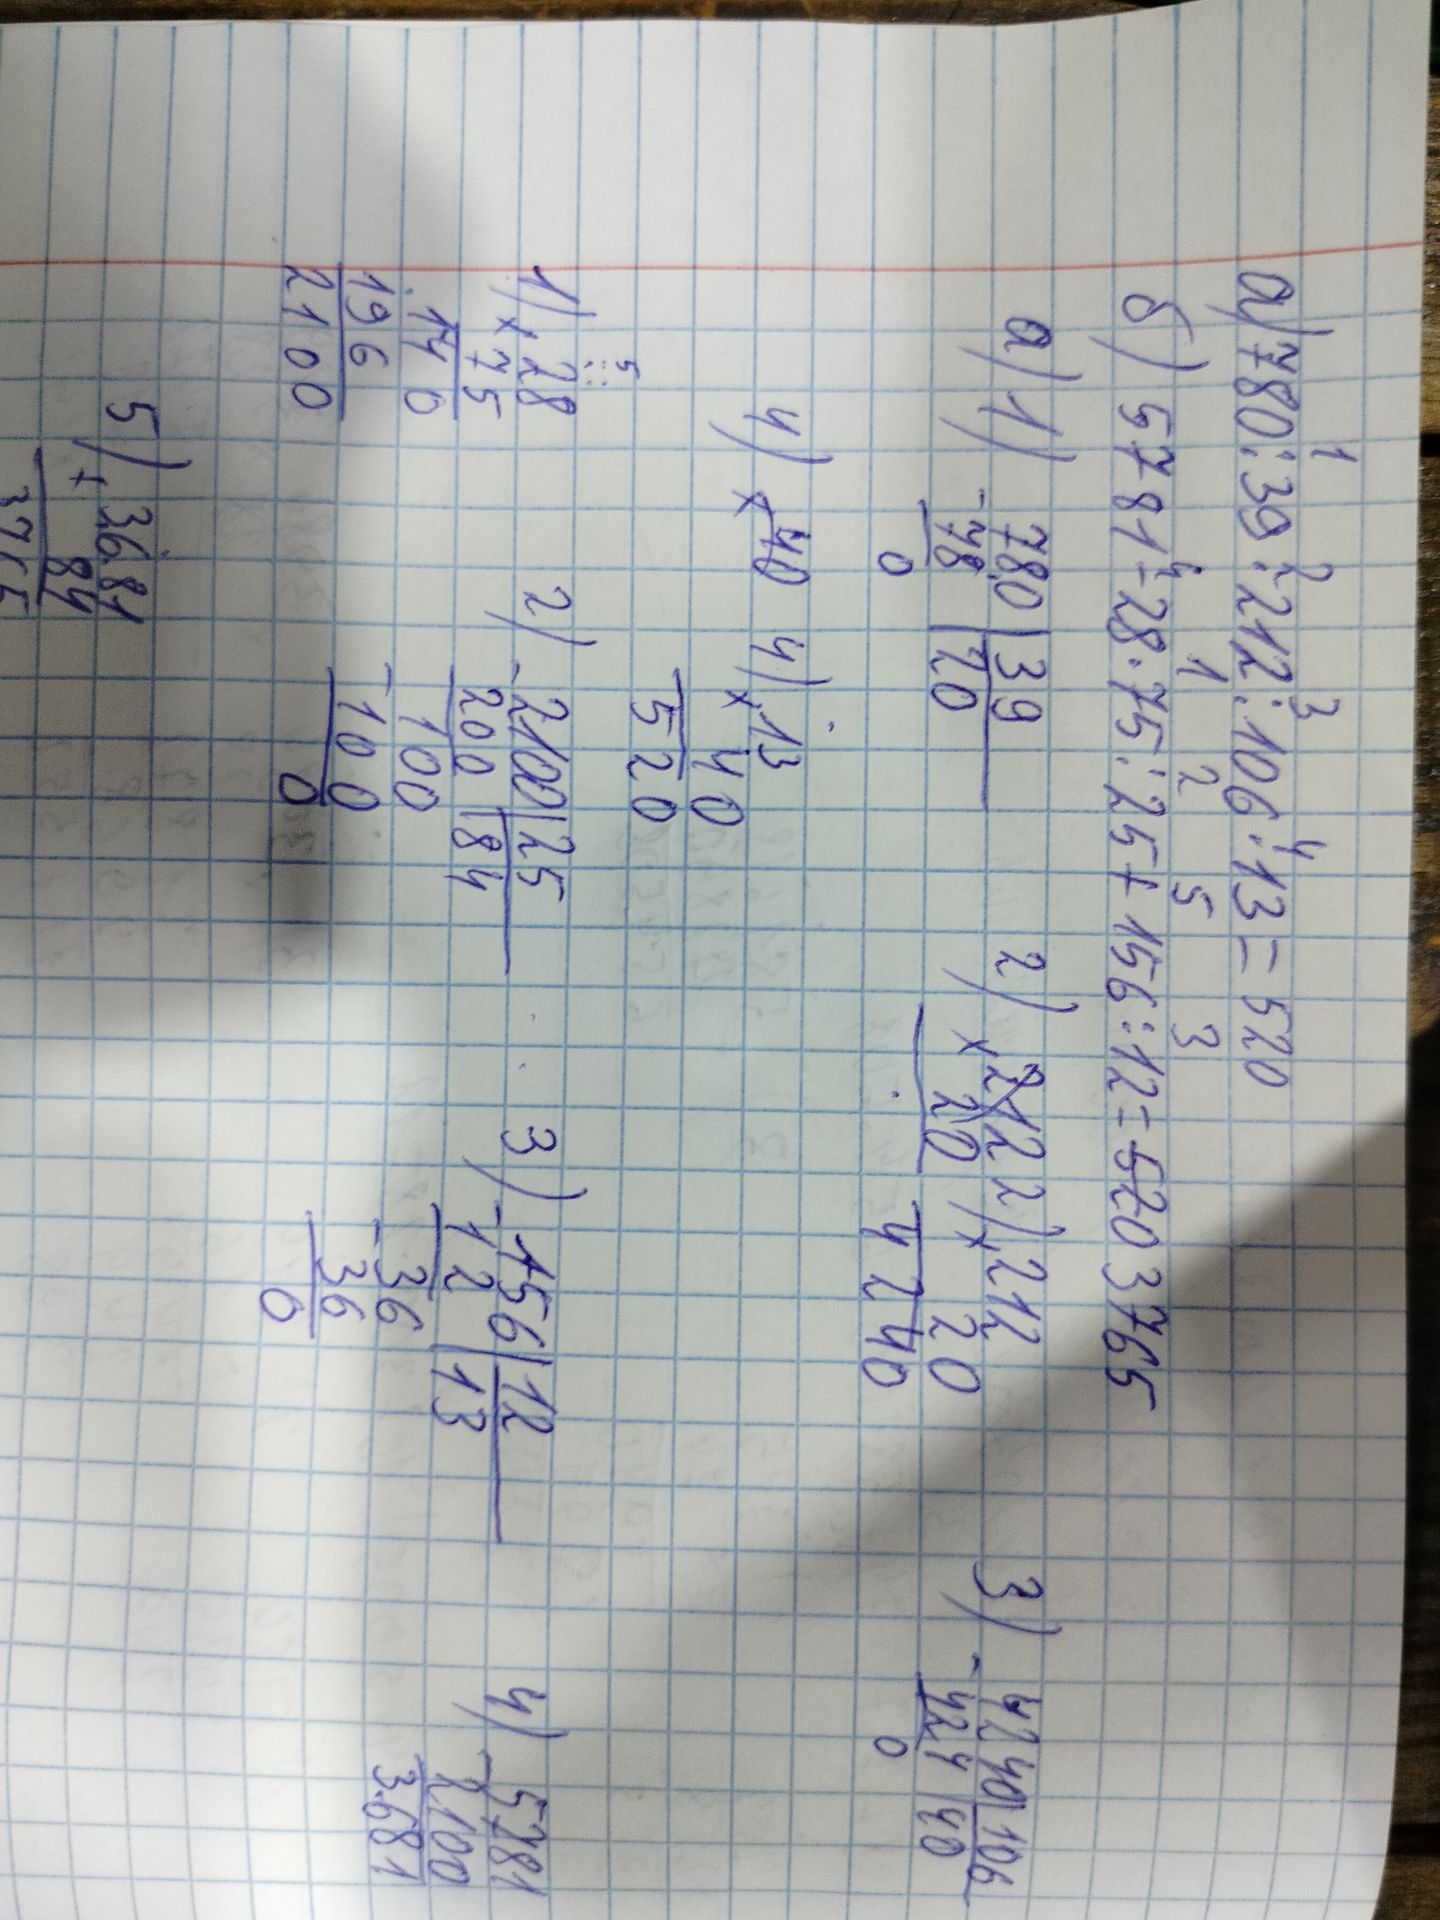 1 2 3 4
а) 780:39·212:106·13=520
4 1 2 5 3
б) 5781-28·75:25+156:12=520 3765
а) 1) -780|39
78 20
0
2) x212
20
2) x212
20
4240
3) -4240|106
424 40
0
4) x40
4) x13
40
520
5
1) x28
75
140
196
2100
2) -2100|25
200 84
100
-100
0
3) -156|12
12 13
36
-36
0
4) -5781
2100
3681
5) +3681
84
3765